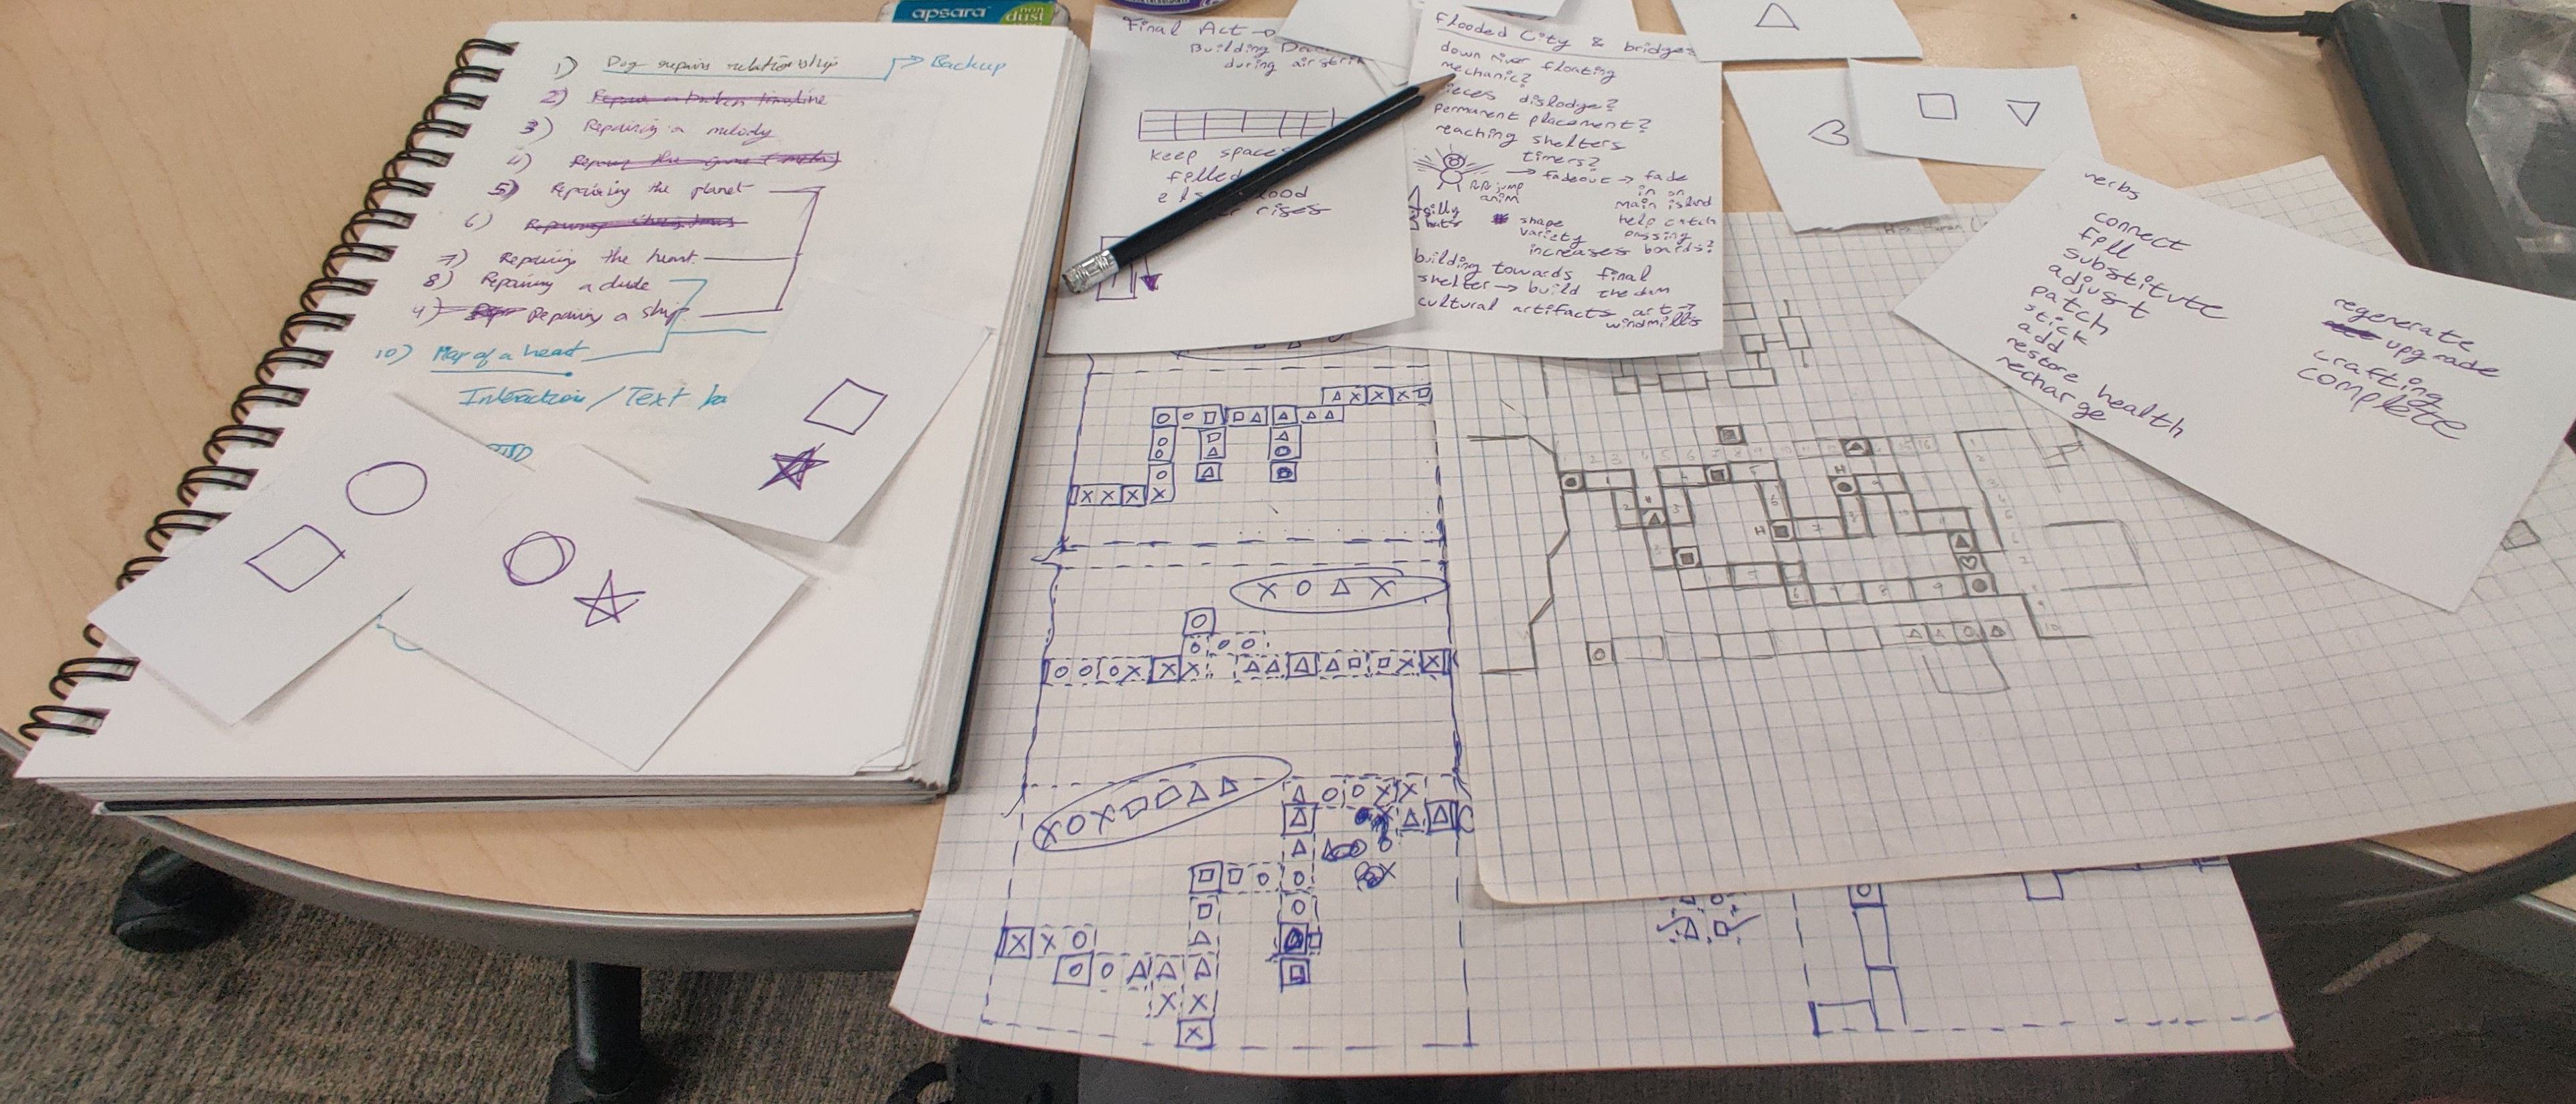 apsara non dust
1) Dog repairs relationship → Backup
2) Repair a broken timeline
3) Repairing a melody
4) Repairing the game (meta)
5) Repairing the planet
6) Repairing Christmas
7) Repairing the heart
8) Repairing a dude
9) Repairing a ship
10) Map of a heart
Interaction / Text
Final Act →
Building
during
keep spaces
filled
rises
Flooded City & bridges
down river floating
mechanic?
dislodge?
permanent placement?
reaching shelters
timers?
→ fadeout → fade
in on
main island
jump
anim
silly
hats
shape
variety
increases
help catch
passing
boards?
building towards final
shelter → build the dam
cultural artifacts art →
windmills
verbs
connect
fill
substitute
adjust
patch
stick
add
restore health
recharge
regenerate
upgrade
crafting
complete